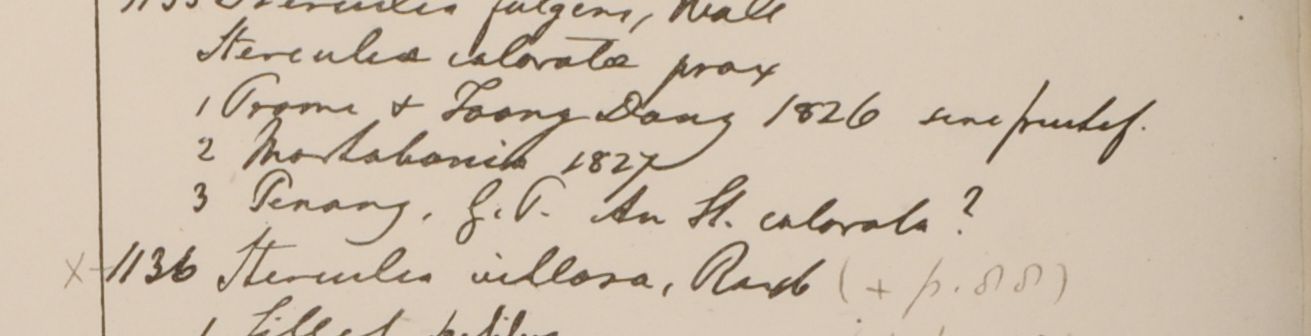 1135 Sterculia fulgens, Wall
Sterculiæ coloratæ prox
1 Prome & Toong Dong 1826 sine fructif.
2 Martabania 1827
3 Penang, G.P. An St. colorata?
x 1136 Sterculia villosa, Roxb (+ p. 88)
1